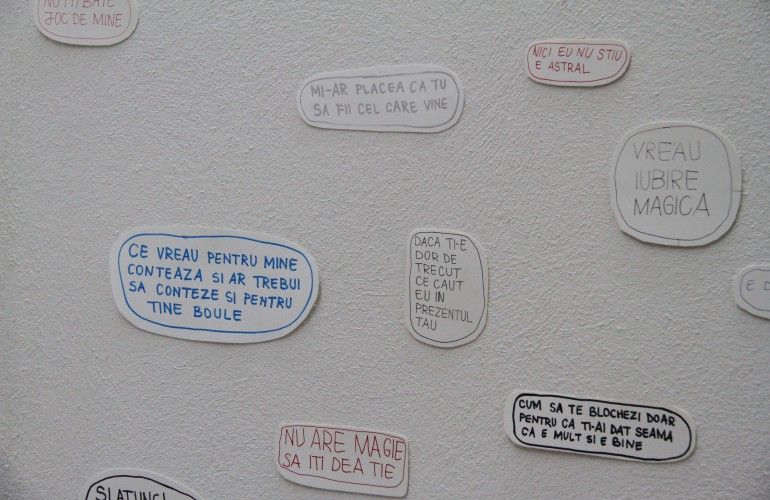 JOC DE MINE
NICI EU NU STIU
E ASTRAL
MI-AR PLACEA CA TU
SA FII CEL CARE VINE
VREAU
IUBIRE
MAGICA
CE VREAU PENTRU MINE
CONTEAZA SI AR TREBUI
SA CONTEZE SI PENTRU
TINE BOULE
DACA TI-E
DOR DE
TRECUT
CE CAUT
EU IN
PREZENTUL
TAU
E
CUM SA TE BLOCHEZI DOAR
PENTRU CA TI-AI DAT SEAMA
CA E MULT SI E BINE
NU ARE MAGIE
SA ITI DEA TIE
SI ATUNCI